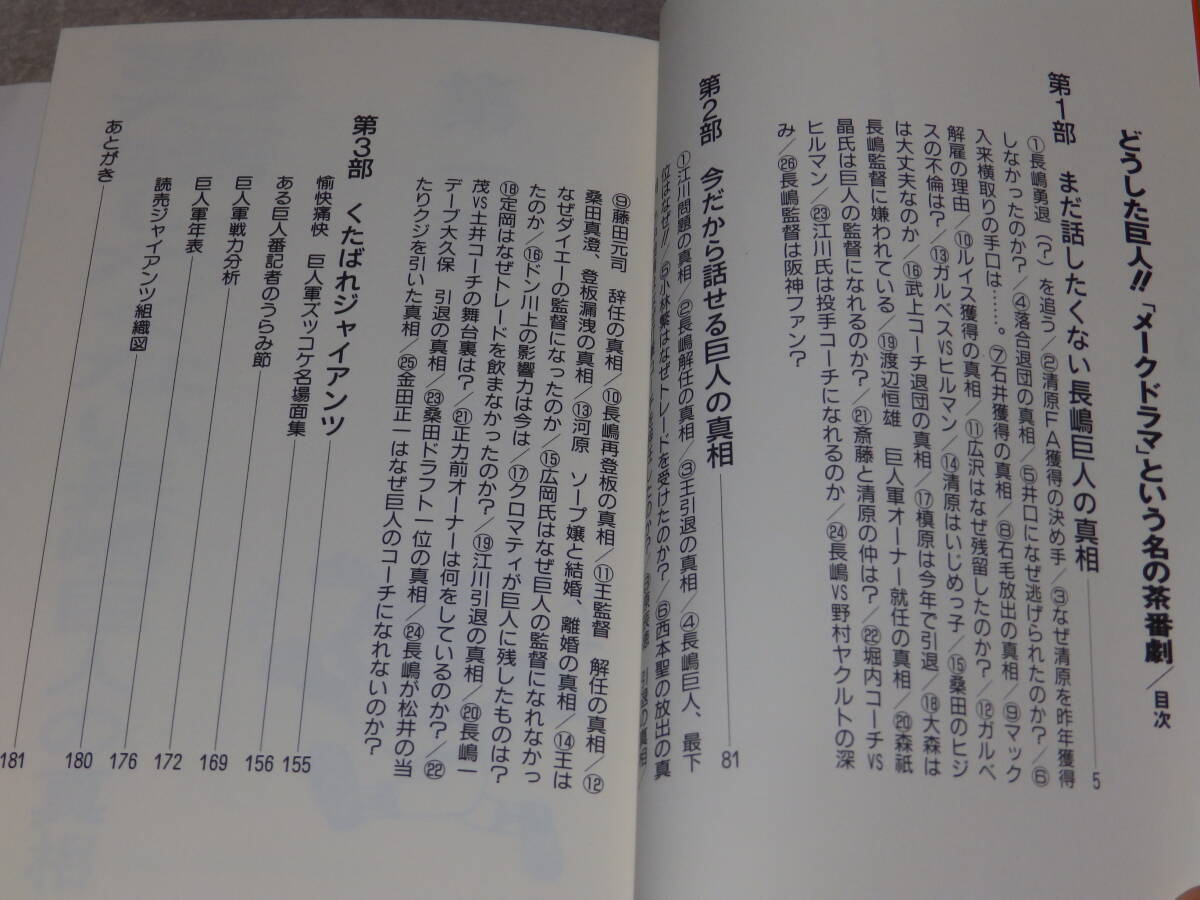 どうした巨人!! 「メークドラマ」という名の茶番劇/目次
第1部　まだ話したくない長嶋巨人の真相 5
①長嶋勇退(?)を追う/②清原FA獲得の決め手/③なぜ清原を昨年獲得
しなかったのか?/④落合退団の真相/⑤井口になぜ逃げられたのか?/⑥
入来横取りの手口は……。⑦石井獲得の真相/⑧石毛放出の真相/⑨マック
解雇の理由/⑩ルイス獲得の真相/⑪広沢はなぜ残留したのか?/⑫ガルベ
スの不倫は?/⑬ガルベスVSヒルマン/⑭清原はいじめっ子/⑮桑田のヒジ
は大丈夫なのか/⑯武上コーチ退団の真相/⑰槙原は今年で引退/⑱大森は
長嶋監督に嫌われている/⑲渡辺恒雄　巨人軍オーナー就任の真相/⑳森祇
晶氏は巨人の監督になれるのか?/㉑斎藤と清原の仲は?/㉒堀内コーチVS
ヒルマン/㉓江川氏は投手コーチになれるのか/㉔長嶋VS野村ヤクルトの深
み/㉖長嶋監督は阪神ファン?
第2部　今だから話せる巨人の真相 81
①江川問題の真相/②長嶋解任の真相/③王引退の真相/④長嶋巨人、最下
位はなぜ!!/⑤小林繁はなぜトレードを受けたのか?/⑥西本聖の放出の真
引退の真相/
⑨藤田元司　辞任の真相/⑩長嶋再登板の真相/⑪王監督　解任の真相/⑫
桑田真澄、登板漏洩の真相/⑬河原　ソープ嬢と結婚、離婚の真相/⑭王は
なぜダイエーの監督になったのか/⑮広岡氏はなぜ巨人の監督になれなかっ
たのか/⑯ドン川上の影響力は今は/⑰クロマティが巨人に残したものは?
/⑱定岡はなぜトレードを飲まなかったのか?/⑲江川引退の真相/⑳長嶋一
茂VS土井コーチの舞台裏は?/㉑正力前オーナーは何をしているのか?/㉒
デーブ大久保　引退の真相/㉓桑田ドラフト一位の真相/㉔長嶋が松井の当
たりクジを引いた真相/㉕金田正一はなぜ巨人のコーチになれないのか?
第3部　くたばれジャイアンツ 155
愉快痛快　巨人軍ズッコケ名場面集 156
ある巨人番記者のうらみ節 169
巨人軍戦力分析 172
巨人軍年表 176
読売ジャイアンツ組織図 180
あとがき 181